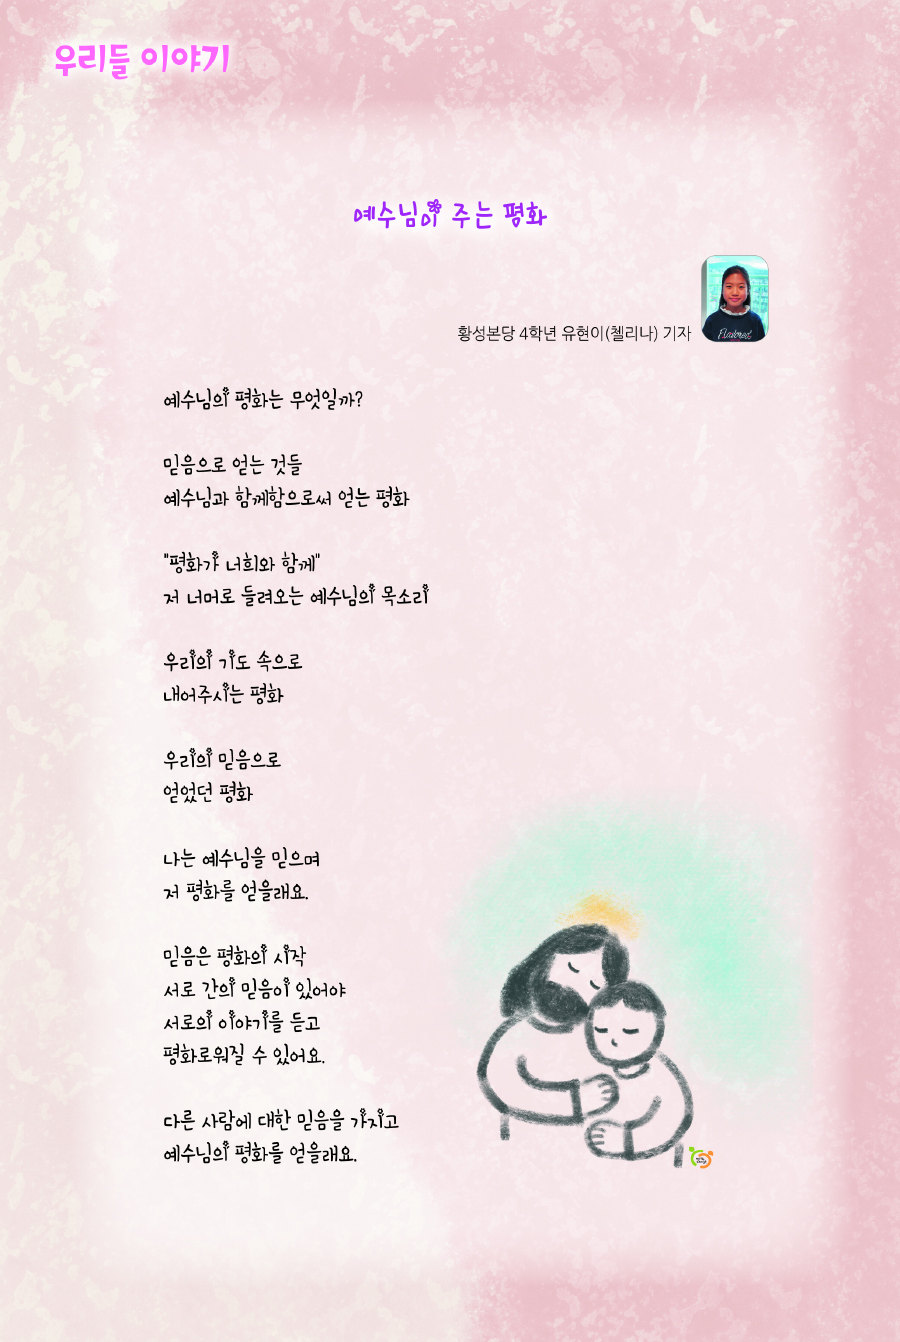 우리들 이야기
예수님이 주는 평화
황성본당 4학년 유현이(첼리나) 기자
예수님의 평화는 무엇일까?
믿음으로 얻는 것들
예수님과 함께함으로써 얻는 평화
"평화가 너희와 함께"
저 너머로 들려오는 예수님의 목소리
우리의 기도 속으로
내어주시는 평화
우리의 믿음으로
얻었던 평화
나는 예수님을 믿으며
저 평화를 얻을래요.
믿음은 평화의 시작
서로 간의 믿음이 있어야
서로의 이야기를 듣고
평화로워질 수 있어요.
다른 사람에 대한 믿음을 가지고
예수님의 평화를 얻을래요.